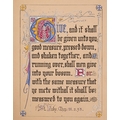 Give, and it shall
be given unto you;
good measure, pressed down,
and shaken together, and
running over, shall men give
into your bosom. For
with the same measure that
ye mete withal it shall be
measured to you again.